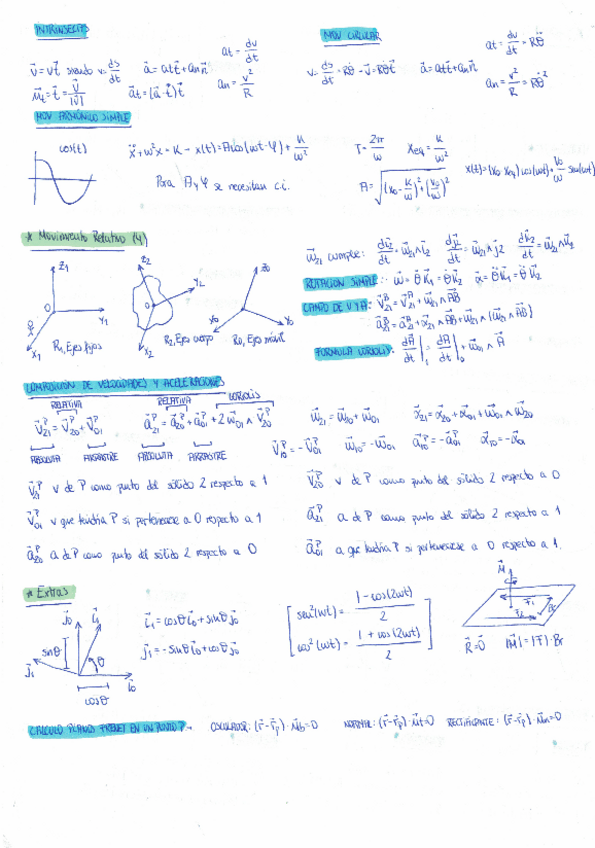 INTRÍNSECAS
v⃗ = v t⃗, siendo v = ds/dt   a⃗ = at t⃗ + an n⃗   at = dv/dt
u⃗t = t⃗ = v⃗/|v⃗|   a⃗t = (a⃗·t⃗) t⃗   an = v²/R
MOV CIRCULAR
v = ds/dt = Rθ̇ → v⃗ = Rθ̇ t⃗   a⃗ = at t⃗ + an n⃗   at = dv/dt = Rθ̈
an = v²/R = Rθ̇²
MOV ARMÓNICO SIMPLE
cos(t)
ẍ + ω²x = K → x(t) = A cos(ωt-φ) + K/ω²   T = 2π/ω   Xeq = K/ω²
Para A y φ se necesitan c.i.   A = √((x₀ - K/ω²)² + (v₀/ω)²)   x(t) = (x₀ - xeq) cos(ωt) + v₀/ω sen(ωt)
* Movimiento Relativo (4)
Z1   Y1   X1   O   R1, Ejes fijos
Z2   Y2   X2   O   R2, Ejes cuerpo
Z0   Y0   X0   R0, Ejes móvil
ω⃗21 cumple: di⃗2/dt = ω⃗21 ∧ i⃗2   dj⃗2/dt = ω⃗21 ∧ j⃗2   dk⃗2/dt = ω⃗21 ∧ k⃗2
ROTACIÓN SIMPLE: ω⃗ = θ̇ k⃗1 = θ̇ k⃗2   α⃗ = θ̈ k⃗1 = θ̈ k⃗2
CAMPO DE V Y A: v⃗21ᴮ = v⃗21ᴬ + ω⃗21 ∧ AB⃗
a⃗21ᴮ = a⃗21ᴬ + α⃗21 ∧ AB⃗ + ω⃗21 ∧ (ω⃗21 ∧ AB⃗)
FORMULA COROLIS: dA⃗/dt|1 = dA⃗/dt|0 + ω⃗01 ∧ A⃗
COMPOSICIÓN DE VELOCIDADES Y ACELERACIONES
RELATIVA   RELATIVA   CORIOLIS
v⃗21ᴾ = v⃗20ᴾ + v⃗01ᴾ   a⃗21ᴾ = a⃗20ᴾ + a⃗01ᴾ + 2ω⃗01 ∧ v⃗20ᴾ   ω⃗21 = ω⃗20 + ω⃗01   α⃗21 = α⃗20 + α⃗01 + ω⃗01 ∧ ω⃗20
ABSOLUTA   ARRASTRE   ABSOLUTA   ARRASTRE   v⃗10ᴾ = -v⃗01ᴾ   ω⃗10 = -ω⃗01   a⃗10ᴾ = -a⃗01ᴾ   α⃗10 = -α⃗01
v⃗21ᴾ v de P como punto del sólido 2 respecto a 1   v⃗20ᴾ v de P como punto del sólido 2 respecto a 0
v⃗01ᴾ v que tendría P si perteneciese a 0 respecto a 1   a⃗21ᴾ a de P como punto del sólido 2 respecto a 1
a⃗20ᴾ a de P como punto del sólido 2 respecto a 0   a⃗01ᴾ a que tendría P si perteneciese a 0 respecto a 1.
* Extras
j⃗0   i⃗1   j⃗1   i⃗0   senθ   θ   cosθ
i⃗1 = cosθ i⃗0 + senθ j⃗0
j⃗1 = -senθ i⃗0 + cosθ j⃗0
sen²(ωt) = (1 - cos(2ωt))/2
cos²(ωt) = (1 + cos(2ωt))/2
M⃗
R⃗ = 0⃗   |M⃗| = |F⃗|·Br
CALCULO PLANOS FRENET EN UN PUNTO? → OSCULADOR: (r⃗-r⃗p)·u⃗b = 0   NORMAL: (r⃗-r⃗p)·u⃗t = 0   RECTIFICANTE: (r⃗-r⃗p)·u⃗n = 0